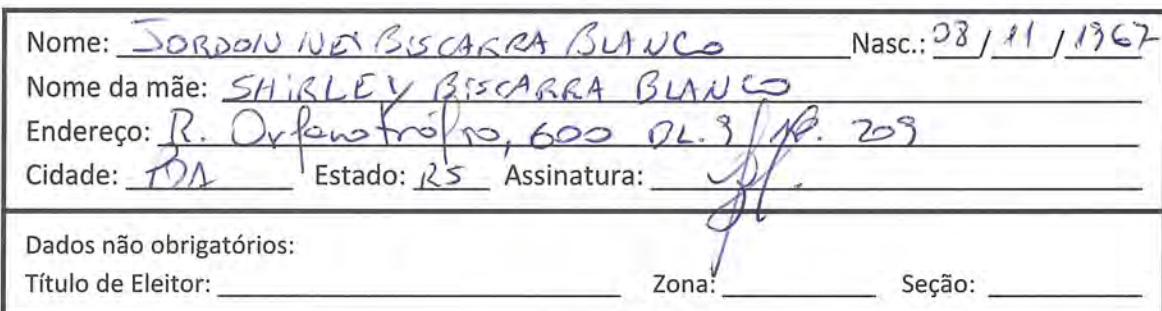 Nome: JORDON NEI BISCARRA BLANCO Nasc.: 08/11/1967
Nome da mãe: SHIRLEY BISCARRA BLANCO
Endereço: R. Orfanotrófio, 600 BL. 9 / AP. 209
Cidade: POA Estado: RS Assinatura:
Dados não obrigatórios:
Título de Eleitor: Zona: Seção: